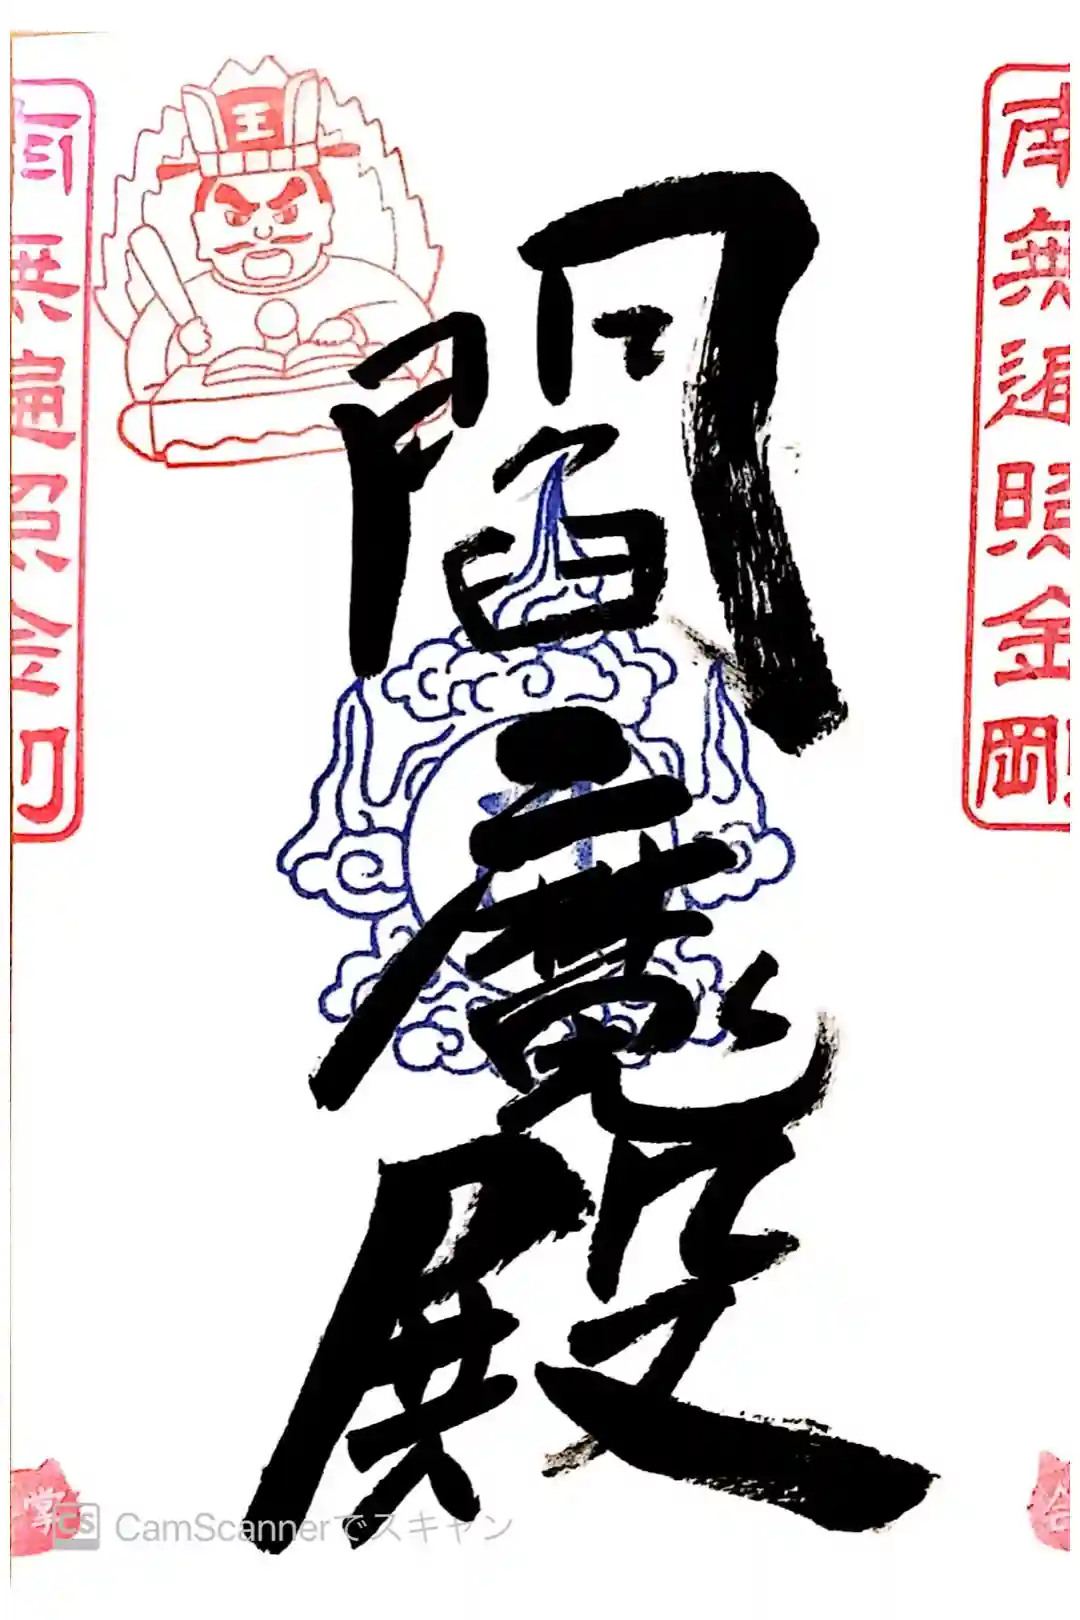 南無遍照金剛
王
閻魔殿
南無遍照金剛
掌
合
CS CamScannerでスキャン